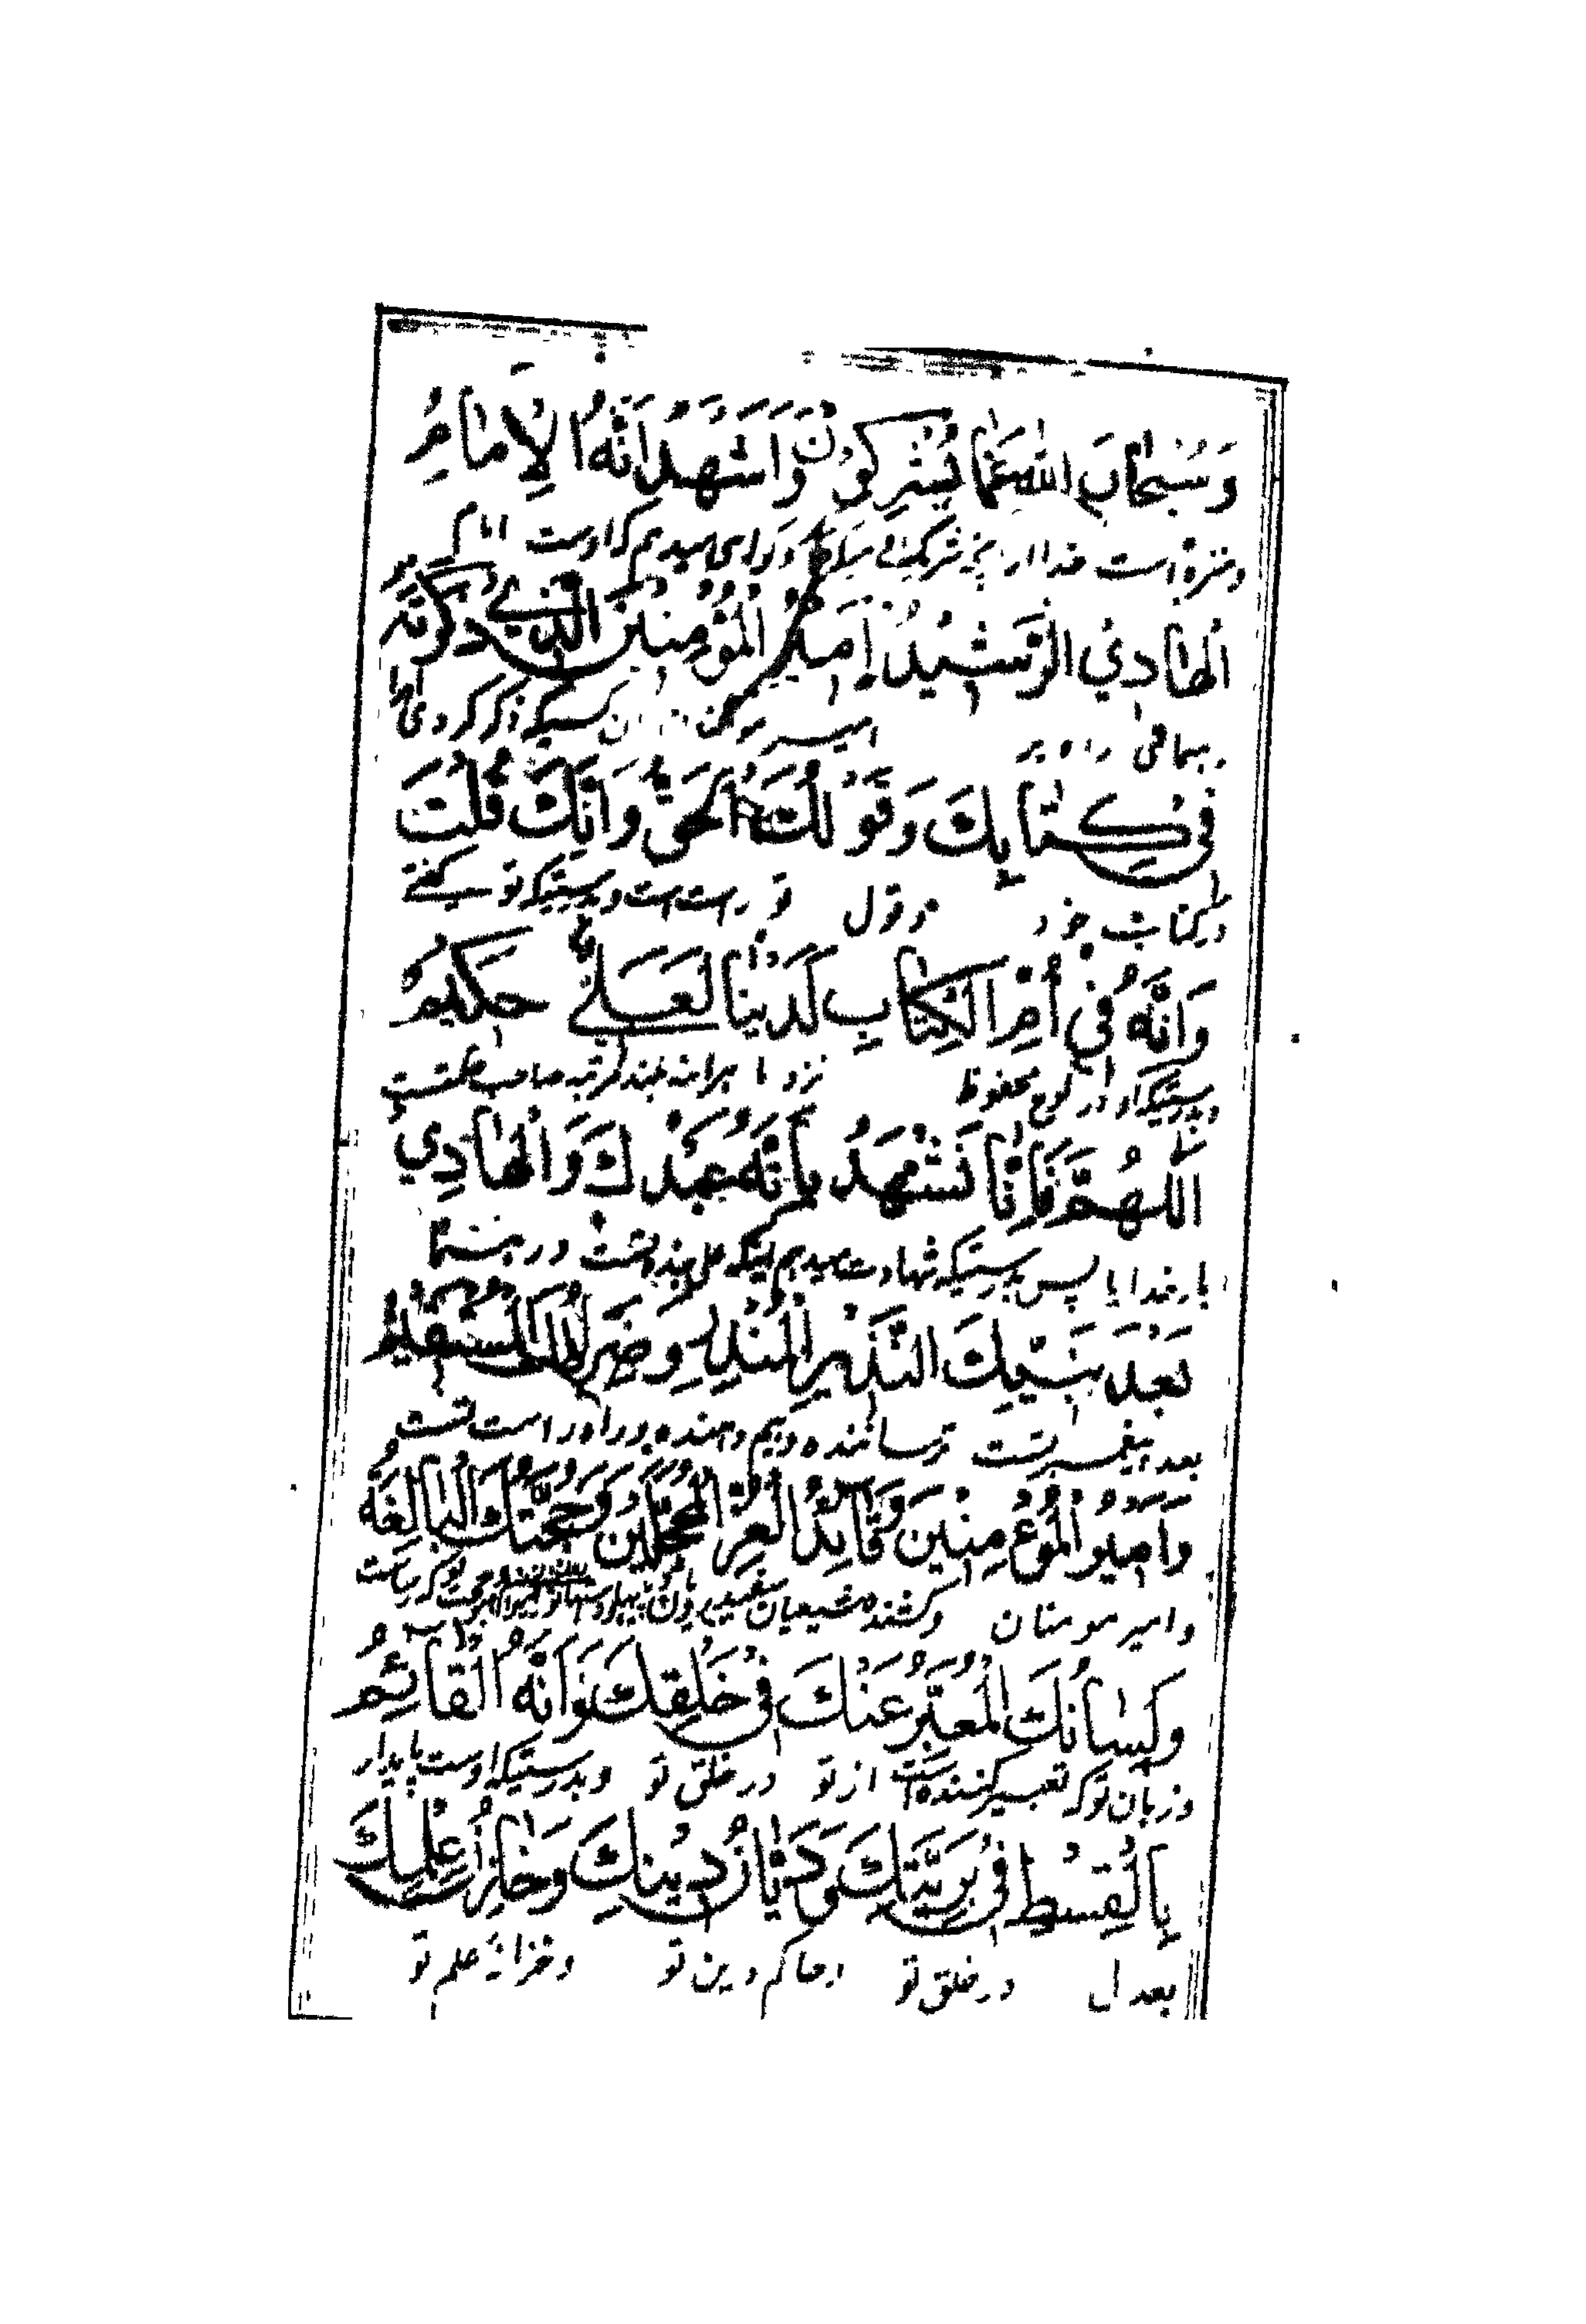 وَسُبْحَانَ اللهِ عَمَّا يُشْرِكُوْنَ وَاَشْهَدُ اَنَّهُ الْاِمَامُ
ومنزه است خدا از وگواهی میدهم که اوست امام
الْهَادِيُ الرَّشِيْدُ اَمِيْرُ الْمُؤْمِنِيْنَ الَّذِيْ ذَكَرْتَهُ
راه بر امیر مومنان آن کسیکه ذکر کردی
فِيْ كِتَابِكَ وَقَوْلُكَ الْحَقُّ وَاَنَّكَ قُلْتَ
درکتاب خود وقول تو راست است وبدرستیکه تو گفتی
وَاَنَّهُ فِيْ اُمِّ الْكِتَابِ لَدَيْنَا لَعَلِيٌّ حَكِيْمٌ
وبدرستیکه او در لوح محفوظ نزد ما هرآئنه بلند مرتبه صاحب حکمتست
اَللّٰهُمَّ فَاِنَّا نَشْهَدُ بِاَنَّهُ عَبْدُكَ وَالْهَادِيْ
بار خدایا پس بدرستیکه شهادت میدهم اینکه علی بنده تست ورهنما
بَعْدَ نَبِيِّكَ النَّذِيْرِ الْمُنْذِرِ وَصِرَاطُكَ الْمُسْتَقِيْمُ
بعد پیغمبر تست ترساننده وبیم دهنده وراه راست تست
وَاَمِيْرُ الْمُؤْمِنِيْنَ وَقَائِدُ الْغُرِّ الْمُحَجَّلِيْنَ وَحُجَّتُكَ الْبَالِغَةُ
وامیر مومنان وکشنده شیعیان
وَلِسَانُكَ الْمُعَبِّرُ عَنْكَ فِيْ خَلْقِكَ وَاَنَّهُ الْقَائِمُ
وزبان تو که تعبیر کننده است از تو در خلق تو وبدرستیکه اوست پایدار
بِالْقِسْطِ فِيْ بَرِيَّتِكَ وَدَيَّانُ دِيْنِكَ وَخَازِنُ عِلْمِكَ
بعدل در خلق تو وحاکم دین تو وخزانهٔ علم تو